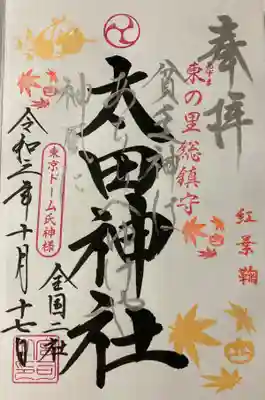 奉拝
紅葉鞠
東の里総鎮守
貧乏神は
太田神社
東京ドーム氏神様
全国一社
令和三年十月十七日